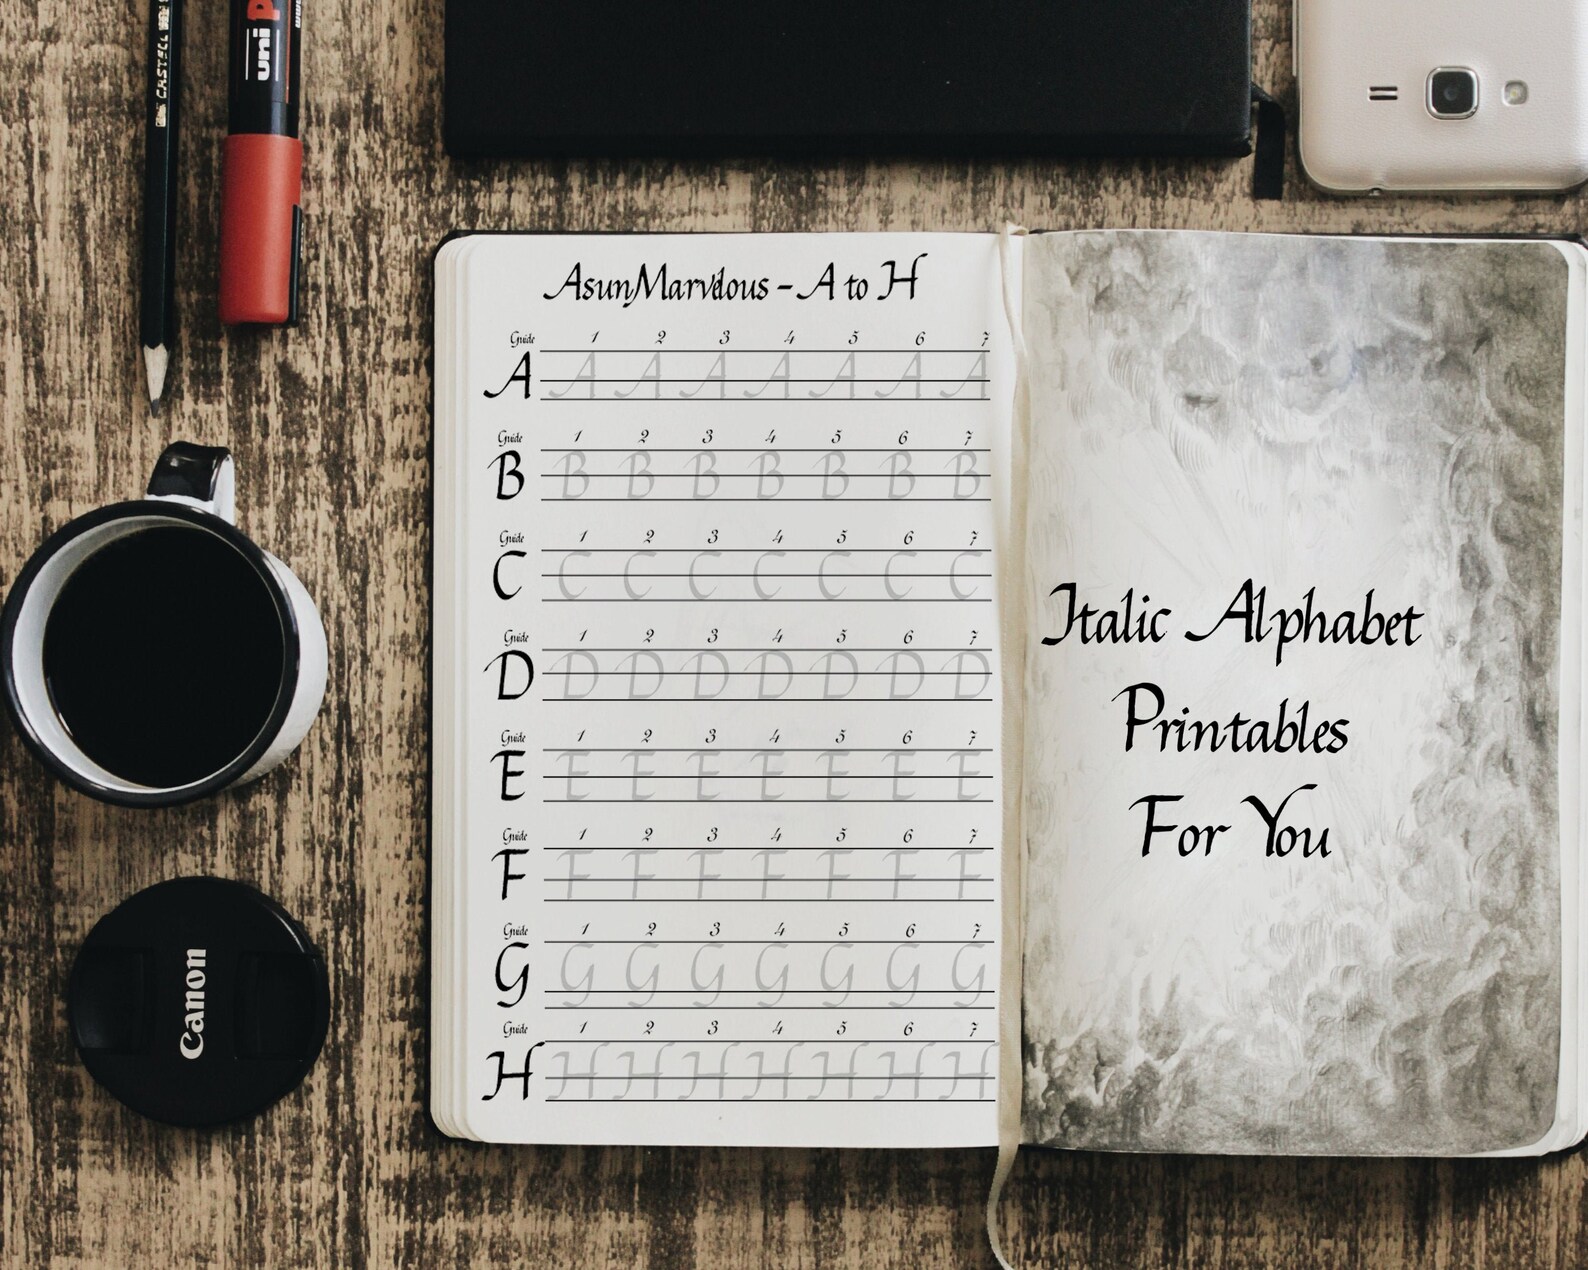 CASTELL
uni
AsunMarvelous - A to H
Guide 1 2 3 4 5 6 7
A A A A A A A A
Guide 1 2 3 4 5 6 7
B B B B B B B B
Guide 1 2 3 4 5 6 7
C C C C C C C C
Guide 1 2 3 4 5 6 7
D D D D D D D D
Guide 1 2 3 4 5 6 7
E E E E E E E E
Guide 1 2 3 4 5 6 7
F F F F F F F F
Guide 1 2 3 4 5 6 7
G G G G G G G G
Guide 1 2 3 4 5 6 7
H H H H H H H H
Italic Alphabet
Printables
For You
Canon